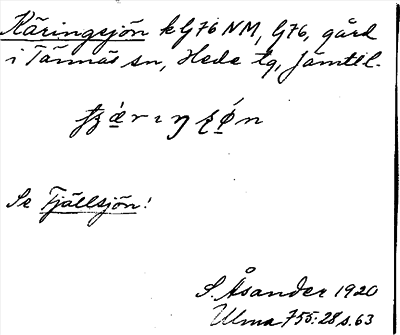 Käringsjön k G76 NM, G76, gård
i Tännäs sn, Hede tg, Jämtl.
Se Fjällsjön!
S. Åsander 1920
Ulma 755:28 s. 63